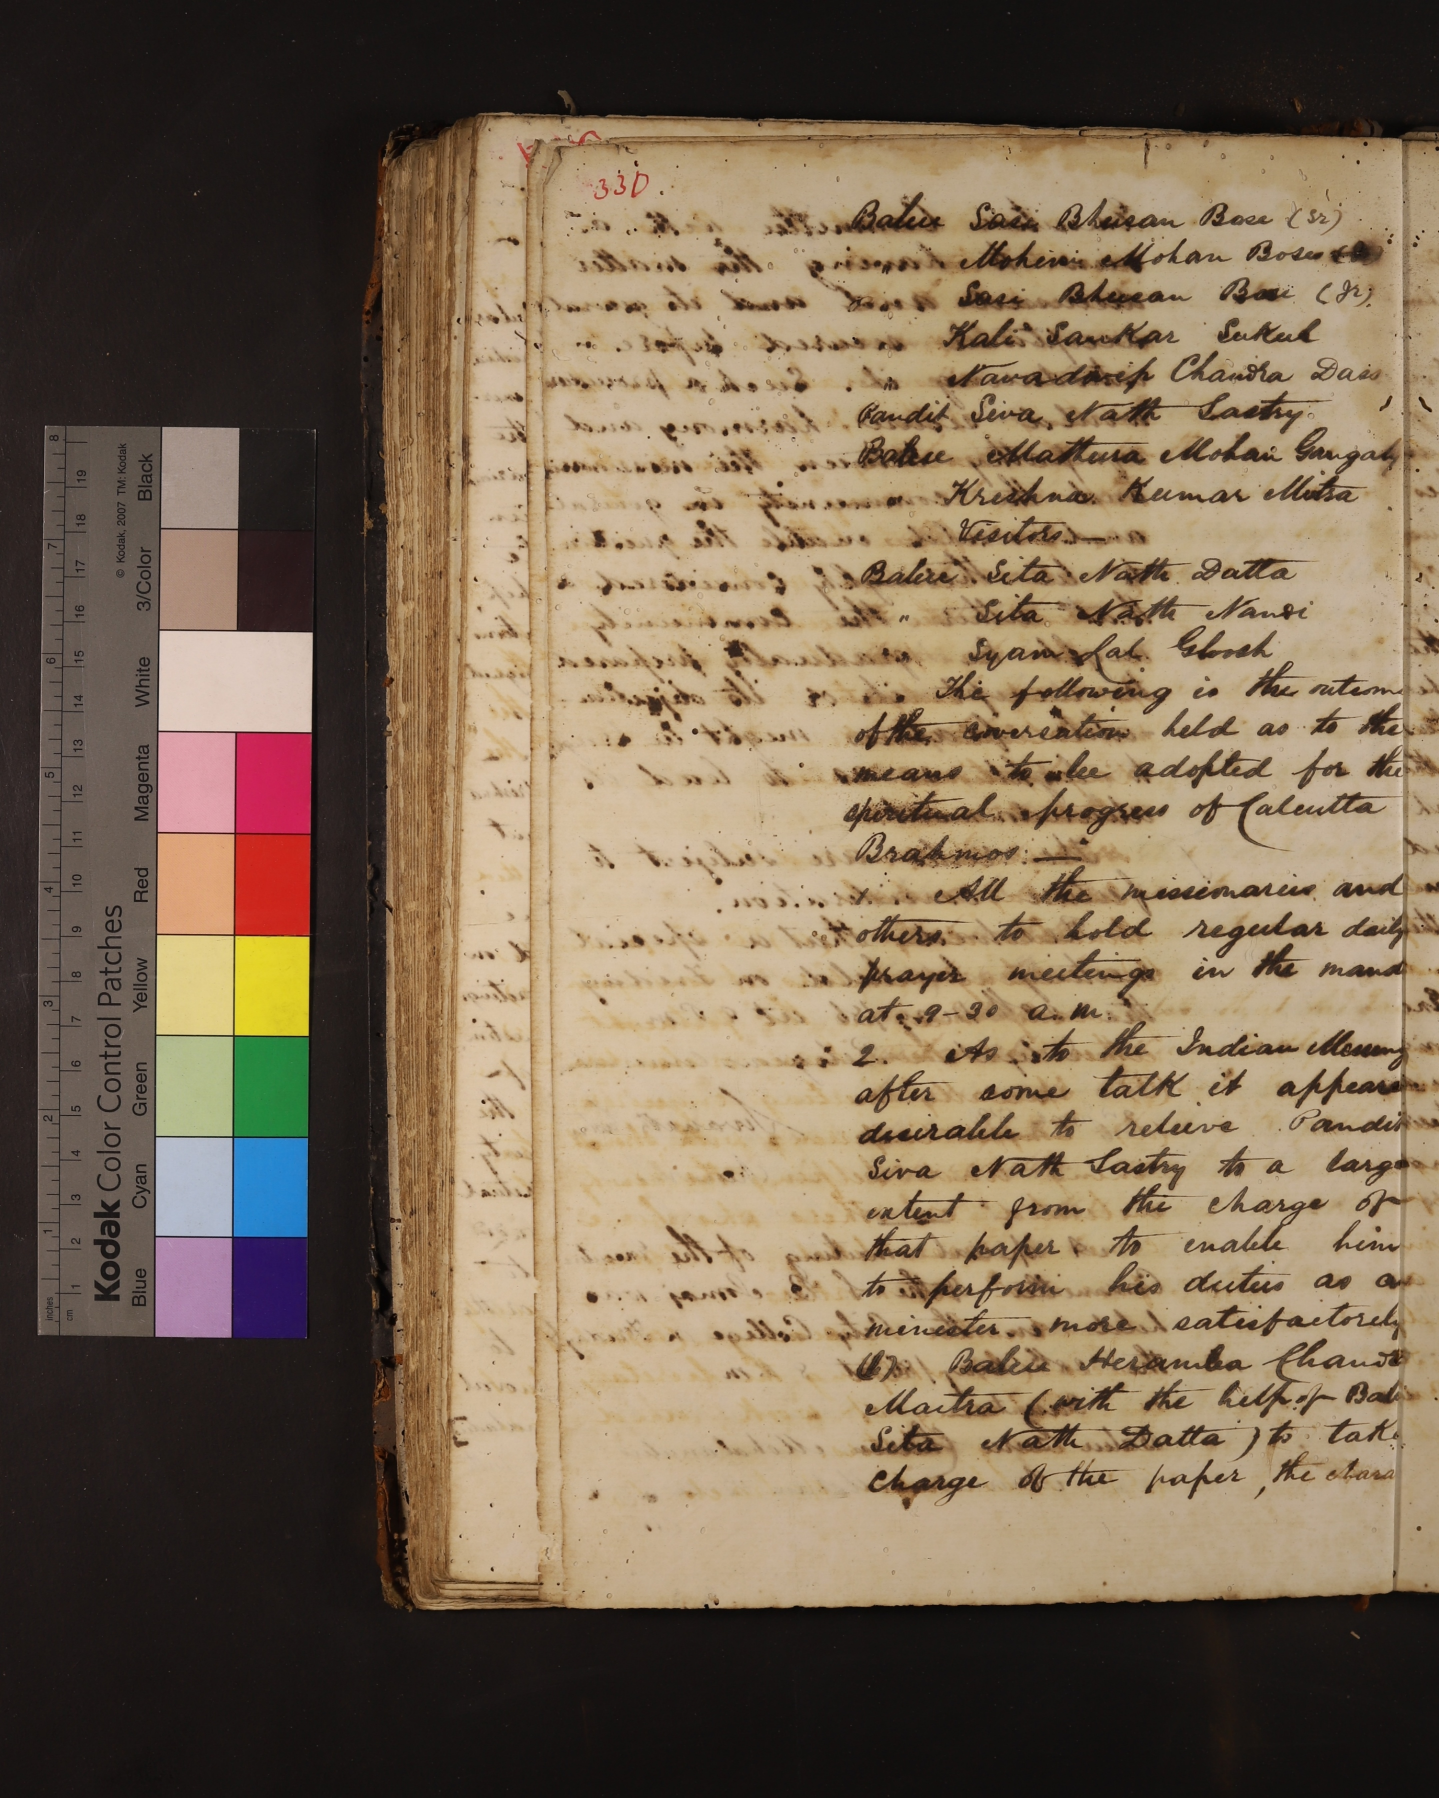 330.
Babu Sasi Bhusan Bose (Sr)
" Mohini Mohan Bose
" Sasi Bhusan Bose (Jr).
Kali Sankar Sukul
" Navadwip Chandra Dass
Pandit Siva Nath Sastry
Babu Mathura Mohan Gangaly
" Krishna Kumar Mitra
Visitors —
Babu Sita Nath Datta
" Sita Nath Nandi
Syam Lal Ghosh
The following is the outcome
of the conversation held as to the
means to be adopted for the
spiritual progress of Calcutta
Brahmos —
1. All the missionaries and
others to hold regular daily
prayer meetings in the mand
at 9-30 a.m.
2. As to the Indian Messeng
after some talk it appears
desirable to relieve Pandit
Siva Nath Sastry to a large
extent from the charge of
that paper to enable him
to perform his duties as a
minister more satisfactorily
(1) Babu Heramba Chandr
Maitra (with the help of Bab
Sita Nath Datta) to take
charge of the paper, the chara
Kodak Color Control Patches
© Kodak, 2007 TM: Kodak
Blue Cyan Green Yellow Red Magenta White 3/Color Black
inches 1 2 3 4 5 6 7 8
cm 1 2 3 4 5 6 7 8 9 10 11 12 13 14 15 16 17 18 19